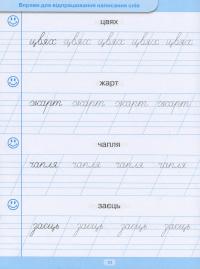 Вправи для відпрацювання написання слів
цвях
цвях цвях цвях цвях цвях
жарт
жарт жарт жарт жарт
чапля
чапля чапля чапля чапля
заєць
заєць заєць заєць заєць